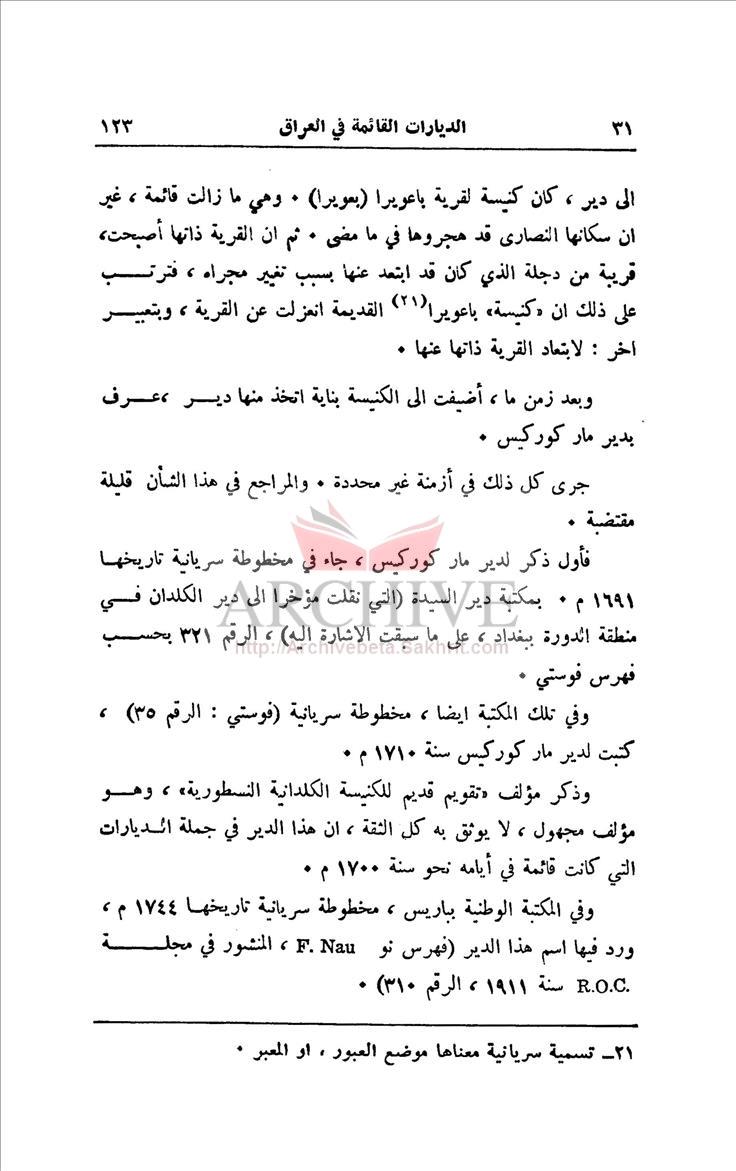 ٣١ الديارات القائمة في العراق ١٢٣
الى دير ، كان كنيسة لقرية باعويرا (بعويرا) ٠ وهي ما زالت قائمة ، غير
ان سكانها النصارى قد هجروها في ما مضى ٠ ثم ان القرية ذاتها أصبحت،
قريبة من دجلة الذي كان قد ابتعد عنها بسبب تغيير مجراه ، فترتب
على ذلك ان «كنيسة» باعويرا(٢١) القديمة انعزلت عن القرية ، وبتعبير
اخر : لابتعاد القرية ذاتها عنها ٠
وبعد زمن ما ، أضيفت الى الكنيسة بناية اتخذ منها دير ، عرف
بدير مار كوركيس ٠
جرى كل ذلك في أزمنة غير محددة ٠ والمراجع في هذا الشأن قليلة
مقتضبة ٠
فأول ذكر لدير مار كوركيس ، جاء في مخطوطة سريانية تاريخها
١٦٩١ م ٠ بمكتبة دير السيدة (التي نقلت مؤخرا الى دير الكلدان في
منطقة الدورة ببغداد ، على ما سبقت الاشارة اليه) ، الرقم ٣٢١ بحسب
فهرس فوستي ٠
وفي تلك المكتبة ايضا ، مخطوطة سريانية (فوستي : الرقم ٣٥) ،
كتبت لدير مار كوركيس سنة ١٧١٠ م ٠
وذكر مؤلف «تقويم قديم للكنيسة الكلدانية النسطورية» ، وهو
مؤلف مجهول ، لا يوثق به كل الثقة ، ان هذا الدير في جملة الديارات
التي كانت قائمة في أيامه نحو سنة ١٧٠٠ م ٠
وفي المكتبة الوطنية بباريس ، مخطوطة سريانية تاريخها ١٧٤٤ م ،
ورد فيها اسم هذا الدير (فهرس نو F. Nau ، المنشور في مجلة
R.O.C. سنة ١٩١١ ، الرقم ٣١٠) ٠
٢١ـ تسمية سريانية معناها موضع العبور ، او المعبر ٠
ARCHIVE
http://Archivebeta.Sakhrit.com